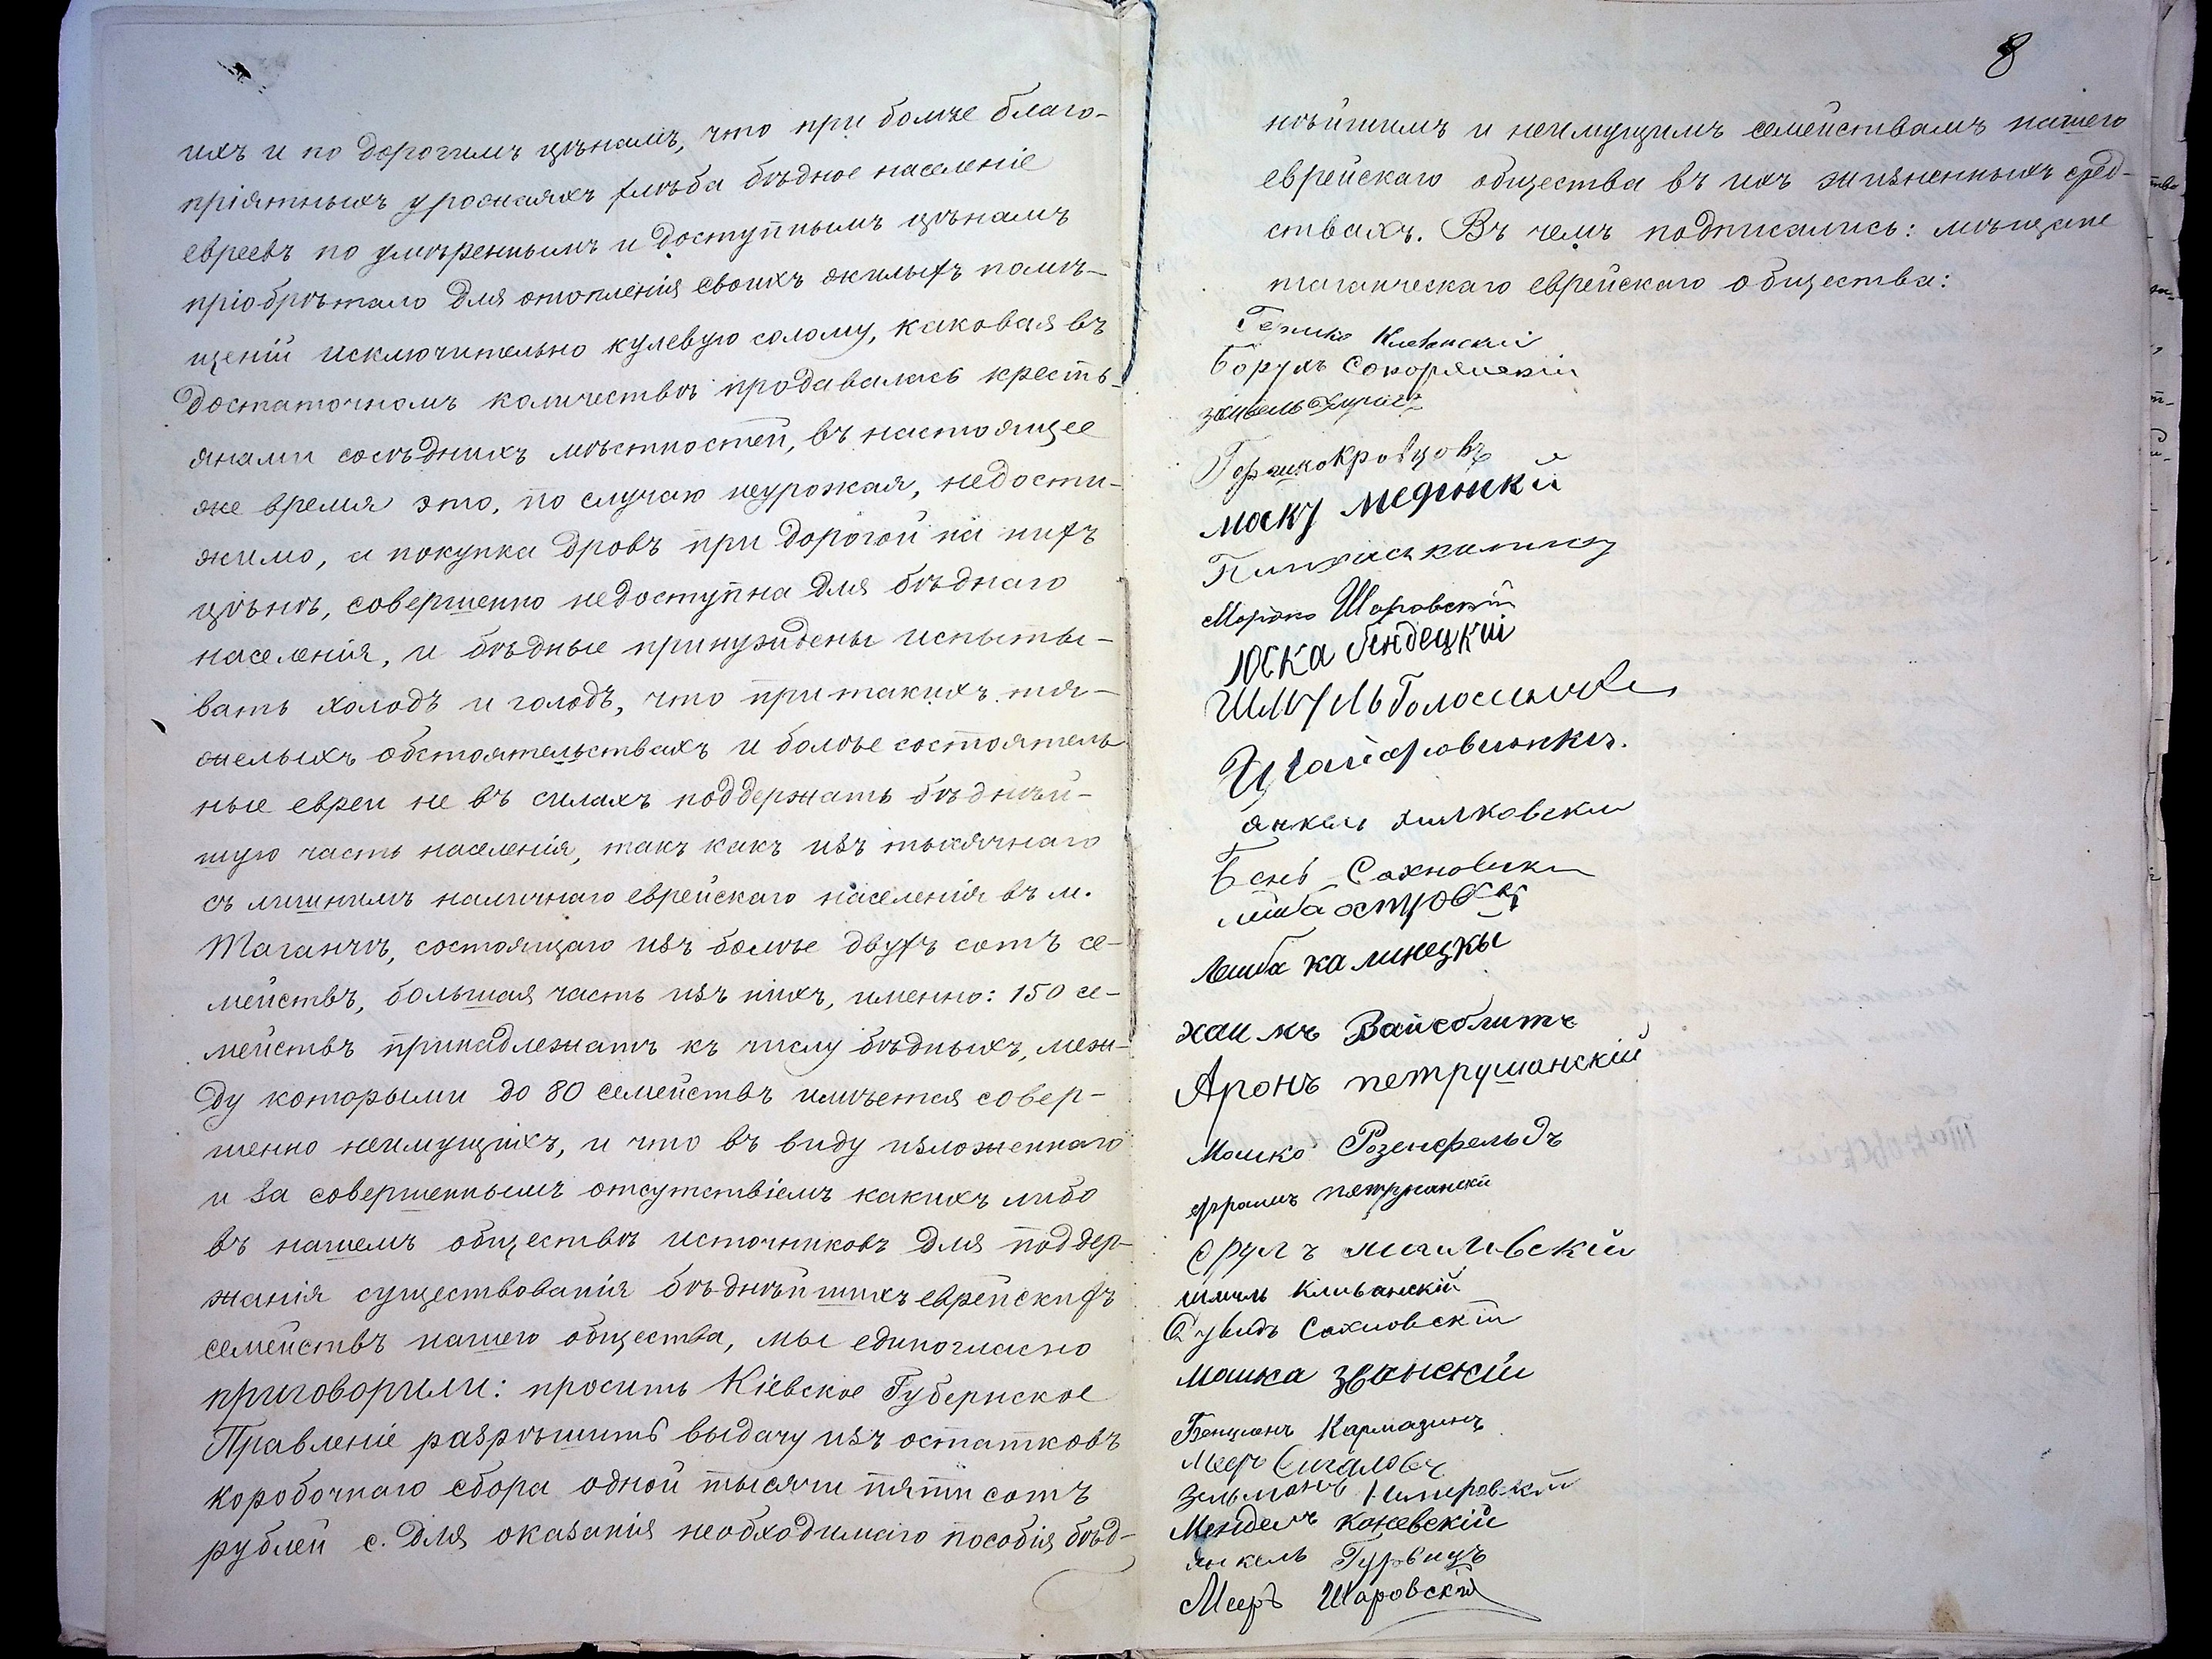 ихъ и по дорогимъ цѣнамъ, что при болѣе благо-
пріятныхъ урожаяхъ хлѣба бѣдное населеніе
евреевъ по умѣреннымъ и доступнымъ цѣнамъ
пріобрѣтало для отопленія своихъ жилыхъ помѣ-
щеній исключительно кулевую солому, каковая въ
достаточномъ количествѣ продавалась кресть-
янами сосѣднихъ мѣстностей, въ настоящее
же время это, по случаю неурожая, недости-
жимо, а покупка дровъ при дорогой на нихъ
цѣнѣ, совершенно недоступна для бѣднаго
населенія, и бѣдные принуждены испыты-
вать холодъ и голодъ, что при такихъ тя-
желыхъ обстоятельствахъ и болѣе состоятель
ные евреи не въ силахъ поддержать бѣднѣй-
шую часть населенія, такъ какъ изъ тысячнаго
съ лишнимъ наличнаго еврейскаго населенія въ м.
Таганчѣ, состоящаго изъ болѣе двухъ сотъ се-
мействъ, большая часть изъ нихъ, именно: 150 се-
мействъ принадлежатъ къ числу бѣдныхъ, меж-
ду которыми до 80 семействъ имѣется совер-
шенно неимущихъ, и что въ виду изложеннаго
и за совершеннымъ отсутствіемъ какихъ либо
въ нашемъ обществѣ источниковъ для поддер-
жанія существованія бѣднѣйшихъ еврейскихъ
семействъ нашего общества, мы единогласно
приговорили: просить Кіевское Губернское
Правленіе разрѣшить выдачу изъ остатковъ
коробочнаго сбора одной тысячи пяти сотъ
рублей с. для оказанія необходимаго пособія бѣд-
8
нѣйшимъ и неимущимъ семействамъ нашего
еврейскаго общества въ ихъ жизненныхъ сред-
ствахъ. Въ чемъ подписались: мѣщане
таганческаго еврейскаго общества:
Борухъ
Мошко Шаровскій
Юска
Шмуль
Янкель
Бень Сахновски
Лейба
Лейба калинецкы
хаимъ Вайсблитъ
Аронъ петрушанскій
Мошко Розенфельдъ
Срулъ
Шмуль Кливанскій
Дувидъ Сахновскій
Мошка званскій
Бенціонъ Кармазинъ
Меер Сигаловъ
Зельманъ
Менделъ каневскій
Янкель Гурвицъ
Мееръ Шаровскій